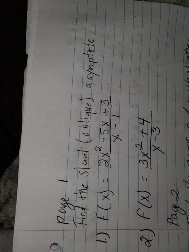 Page 1
find the Slant (oblique) asymptote
1) F(x) = 2x² - 5x + 3
x - 1
2) f(x) = 3x² + 4
x - 3
Page 2